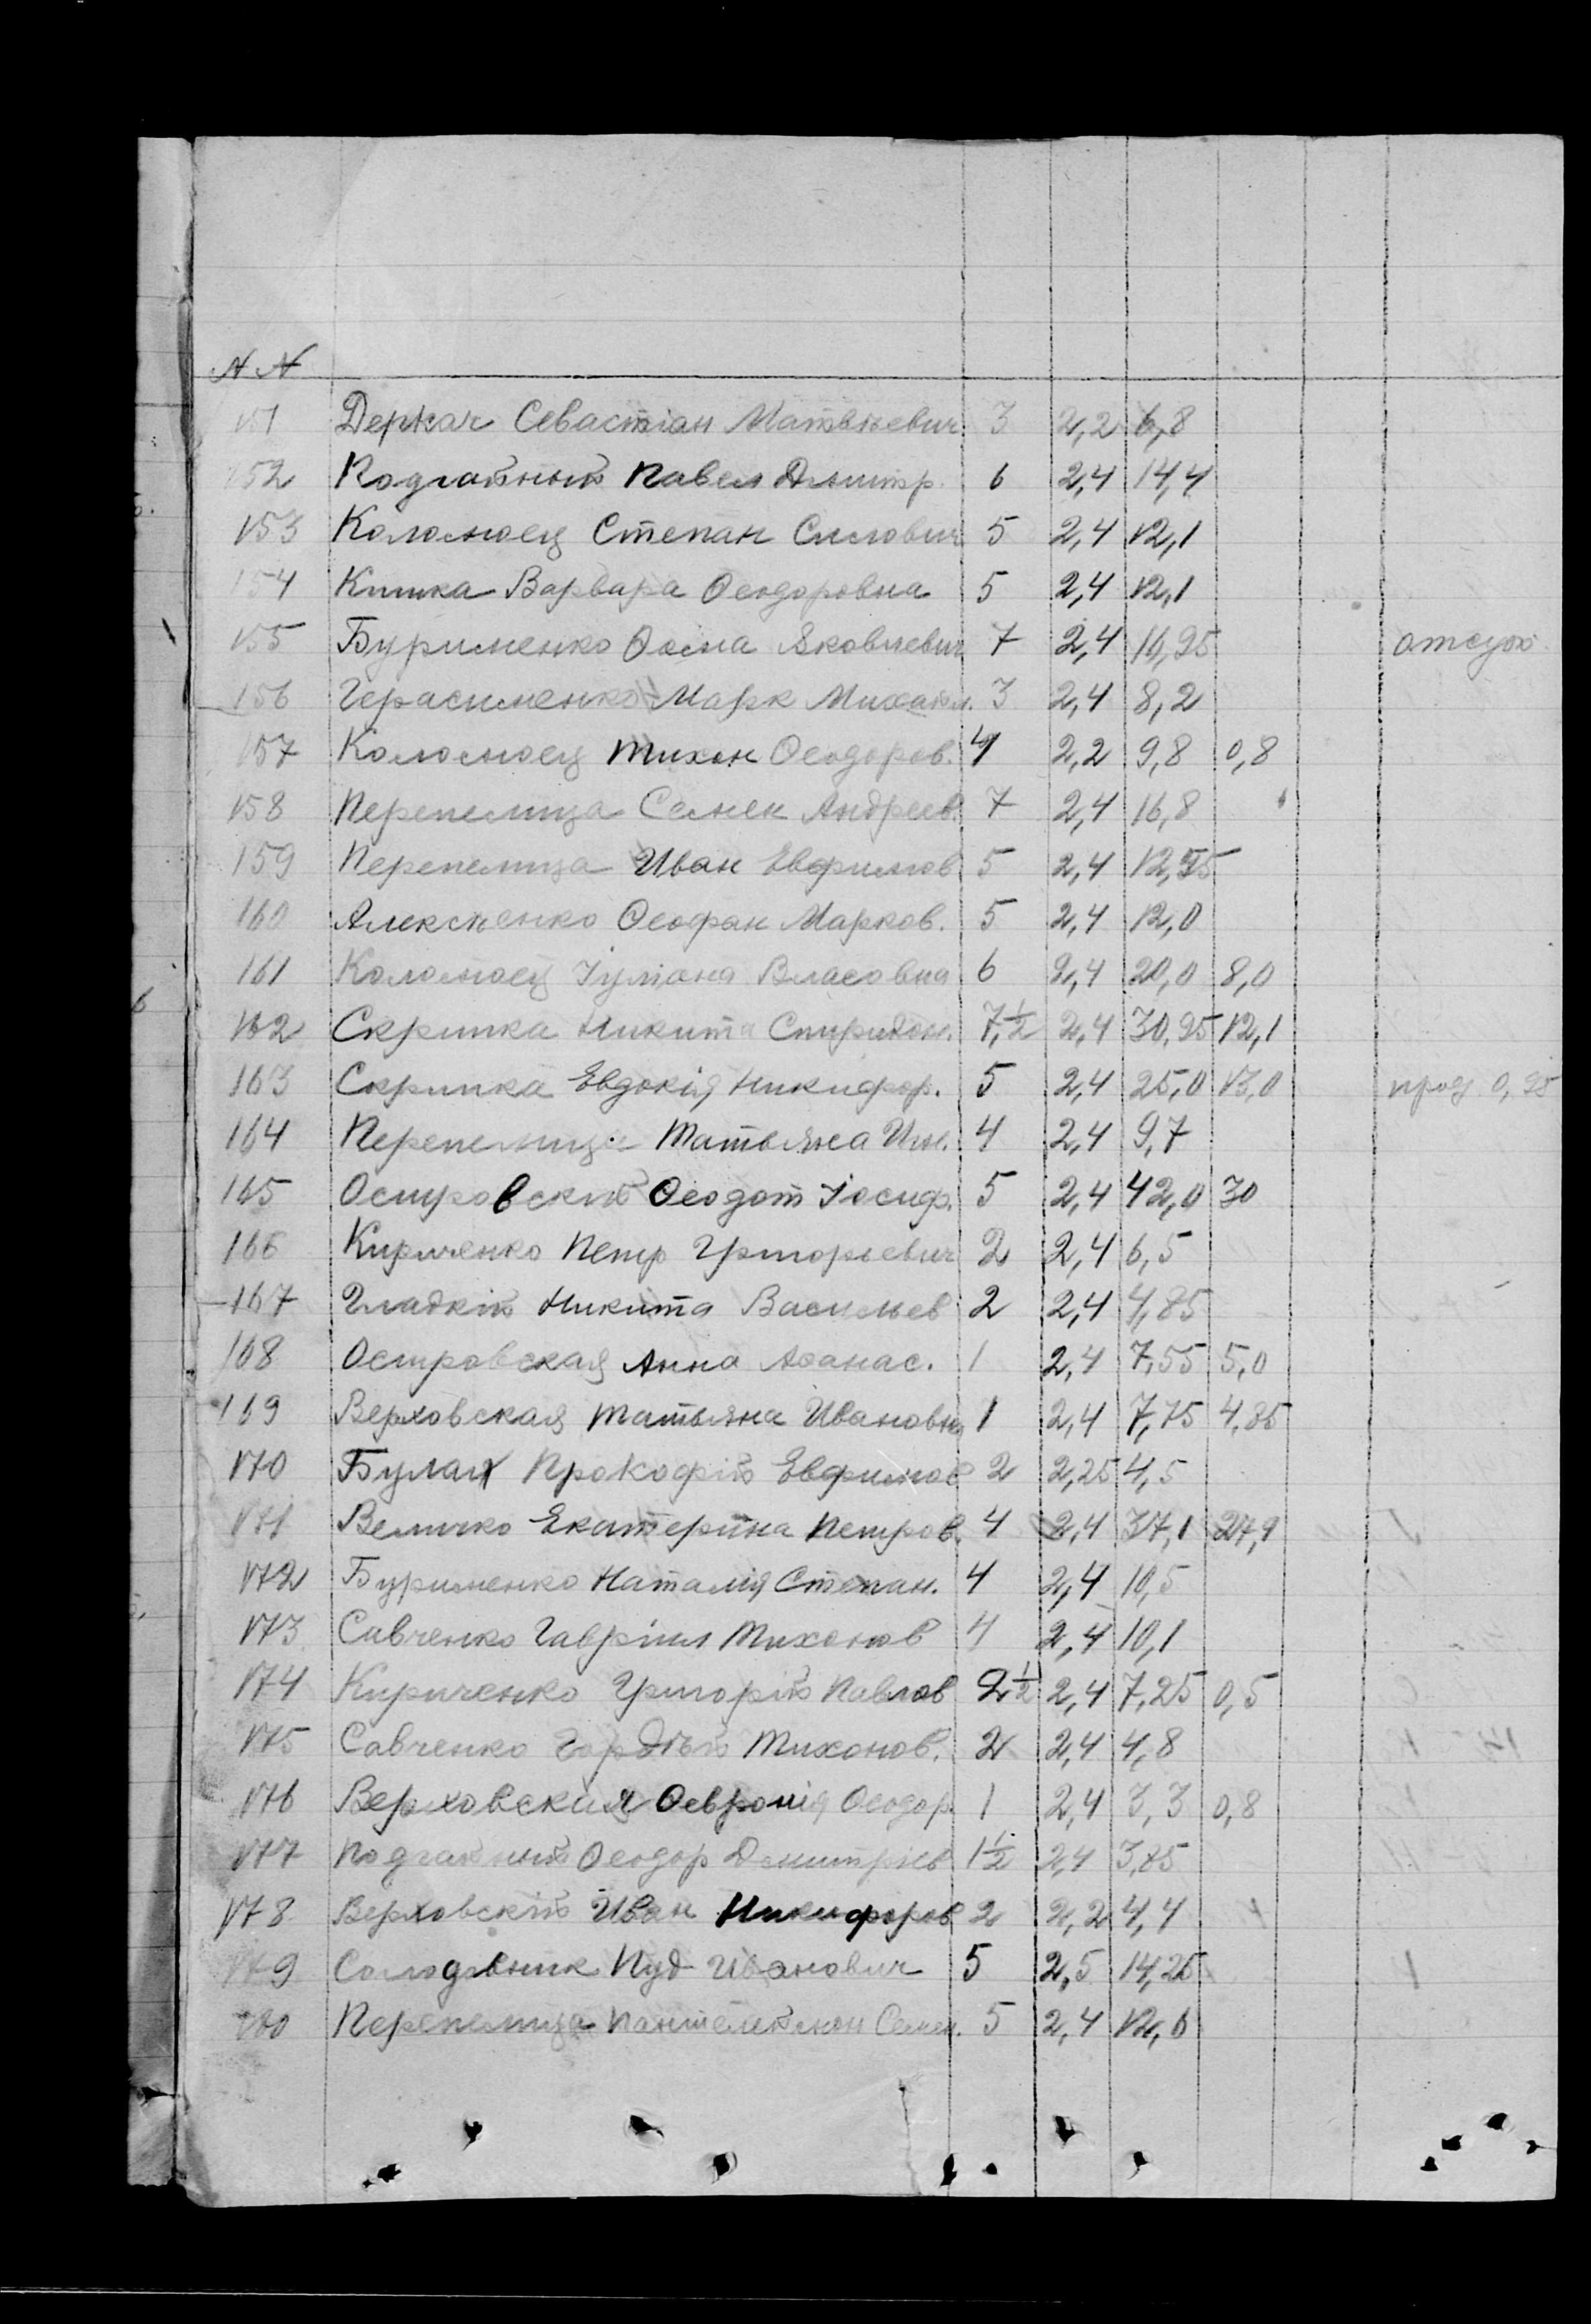 № №
151 Деркач Севастіан Матвѣевич 3 2,2 6,8
152 Подгайный Павел Дмитр. 6 2,4 14,4
153 Коломоец Степан Силович 5 2,4 12,1
154 Кишка Варвара Ѳеодоровна 5 2,4 12,1
155 Бурименко Ѳома Яковлевич 7 2,4 16,95 отсут.
156 Герасименко Марк Михайл. 3 2,4 8,2
157 Коломоец Тихон Ѳеодоров. 4 2,2 9,8 0,8
158 Перепелица Семен Андреев. 7 2,4 16,8
159 Перепелица Иван Евфимов 5 2,4 12,25
160 Алексѣенко Ѳеофан Марков. 5 2,4 12,0
161 Коломоец Іуліана Власовна 6 2,4 20,0 8,0
162 Скрипка Никита Спиридон. 7,½ 2,4 30,25 12,1
163 Скрипка Евдокія Никифор. 5 2,4 25,0 13,0
164 Перепелица Татьяна Ил. 4 2,4 9,7
165 Островский Ѳеодот Іосиф. 5 2,4 42,0 30
166 Кириченко Петр Григорьевич 2 2,4 6,5
167 Гладкій Никита Васильев 2 2,4 4,85
168 Островская Анна Аѳанас. 1 2,4 7,55 5,0
169 Верховская Татьяна Ивановна 1 2,4 7,75 4,85
170 Булах Прокофій Евфимов 2 2,25 4,5
171 Величко Екатерина Петров. 4 2,4 37,1 27,9
172 Бурименко Наталія Степан. 4 2,4 10,5
173 Савченко Гавріил Тихонов 4 2,4 10,1
174 Кириченко Григорій Павлов 2½ 2,4 7,25 0,5
175 Савченко Гордѣй Тихонов. 2 2,4 4,8
176 Верховская Ѳевронія Ѳеодор. 1 2,4 3,3 0,8
177 Подгайный Ѳеодор Дмитріев 1½ 2,4 3,85
178 Верховскій Иван Никифоров 2 2,2 4,4
179 Солодовник Пуд Иванович 5 2,5 14,25
180 Перепелица Пантелеймон Семен. 5 2,4 12,0